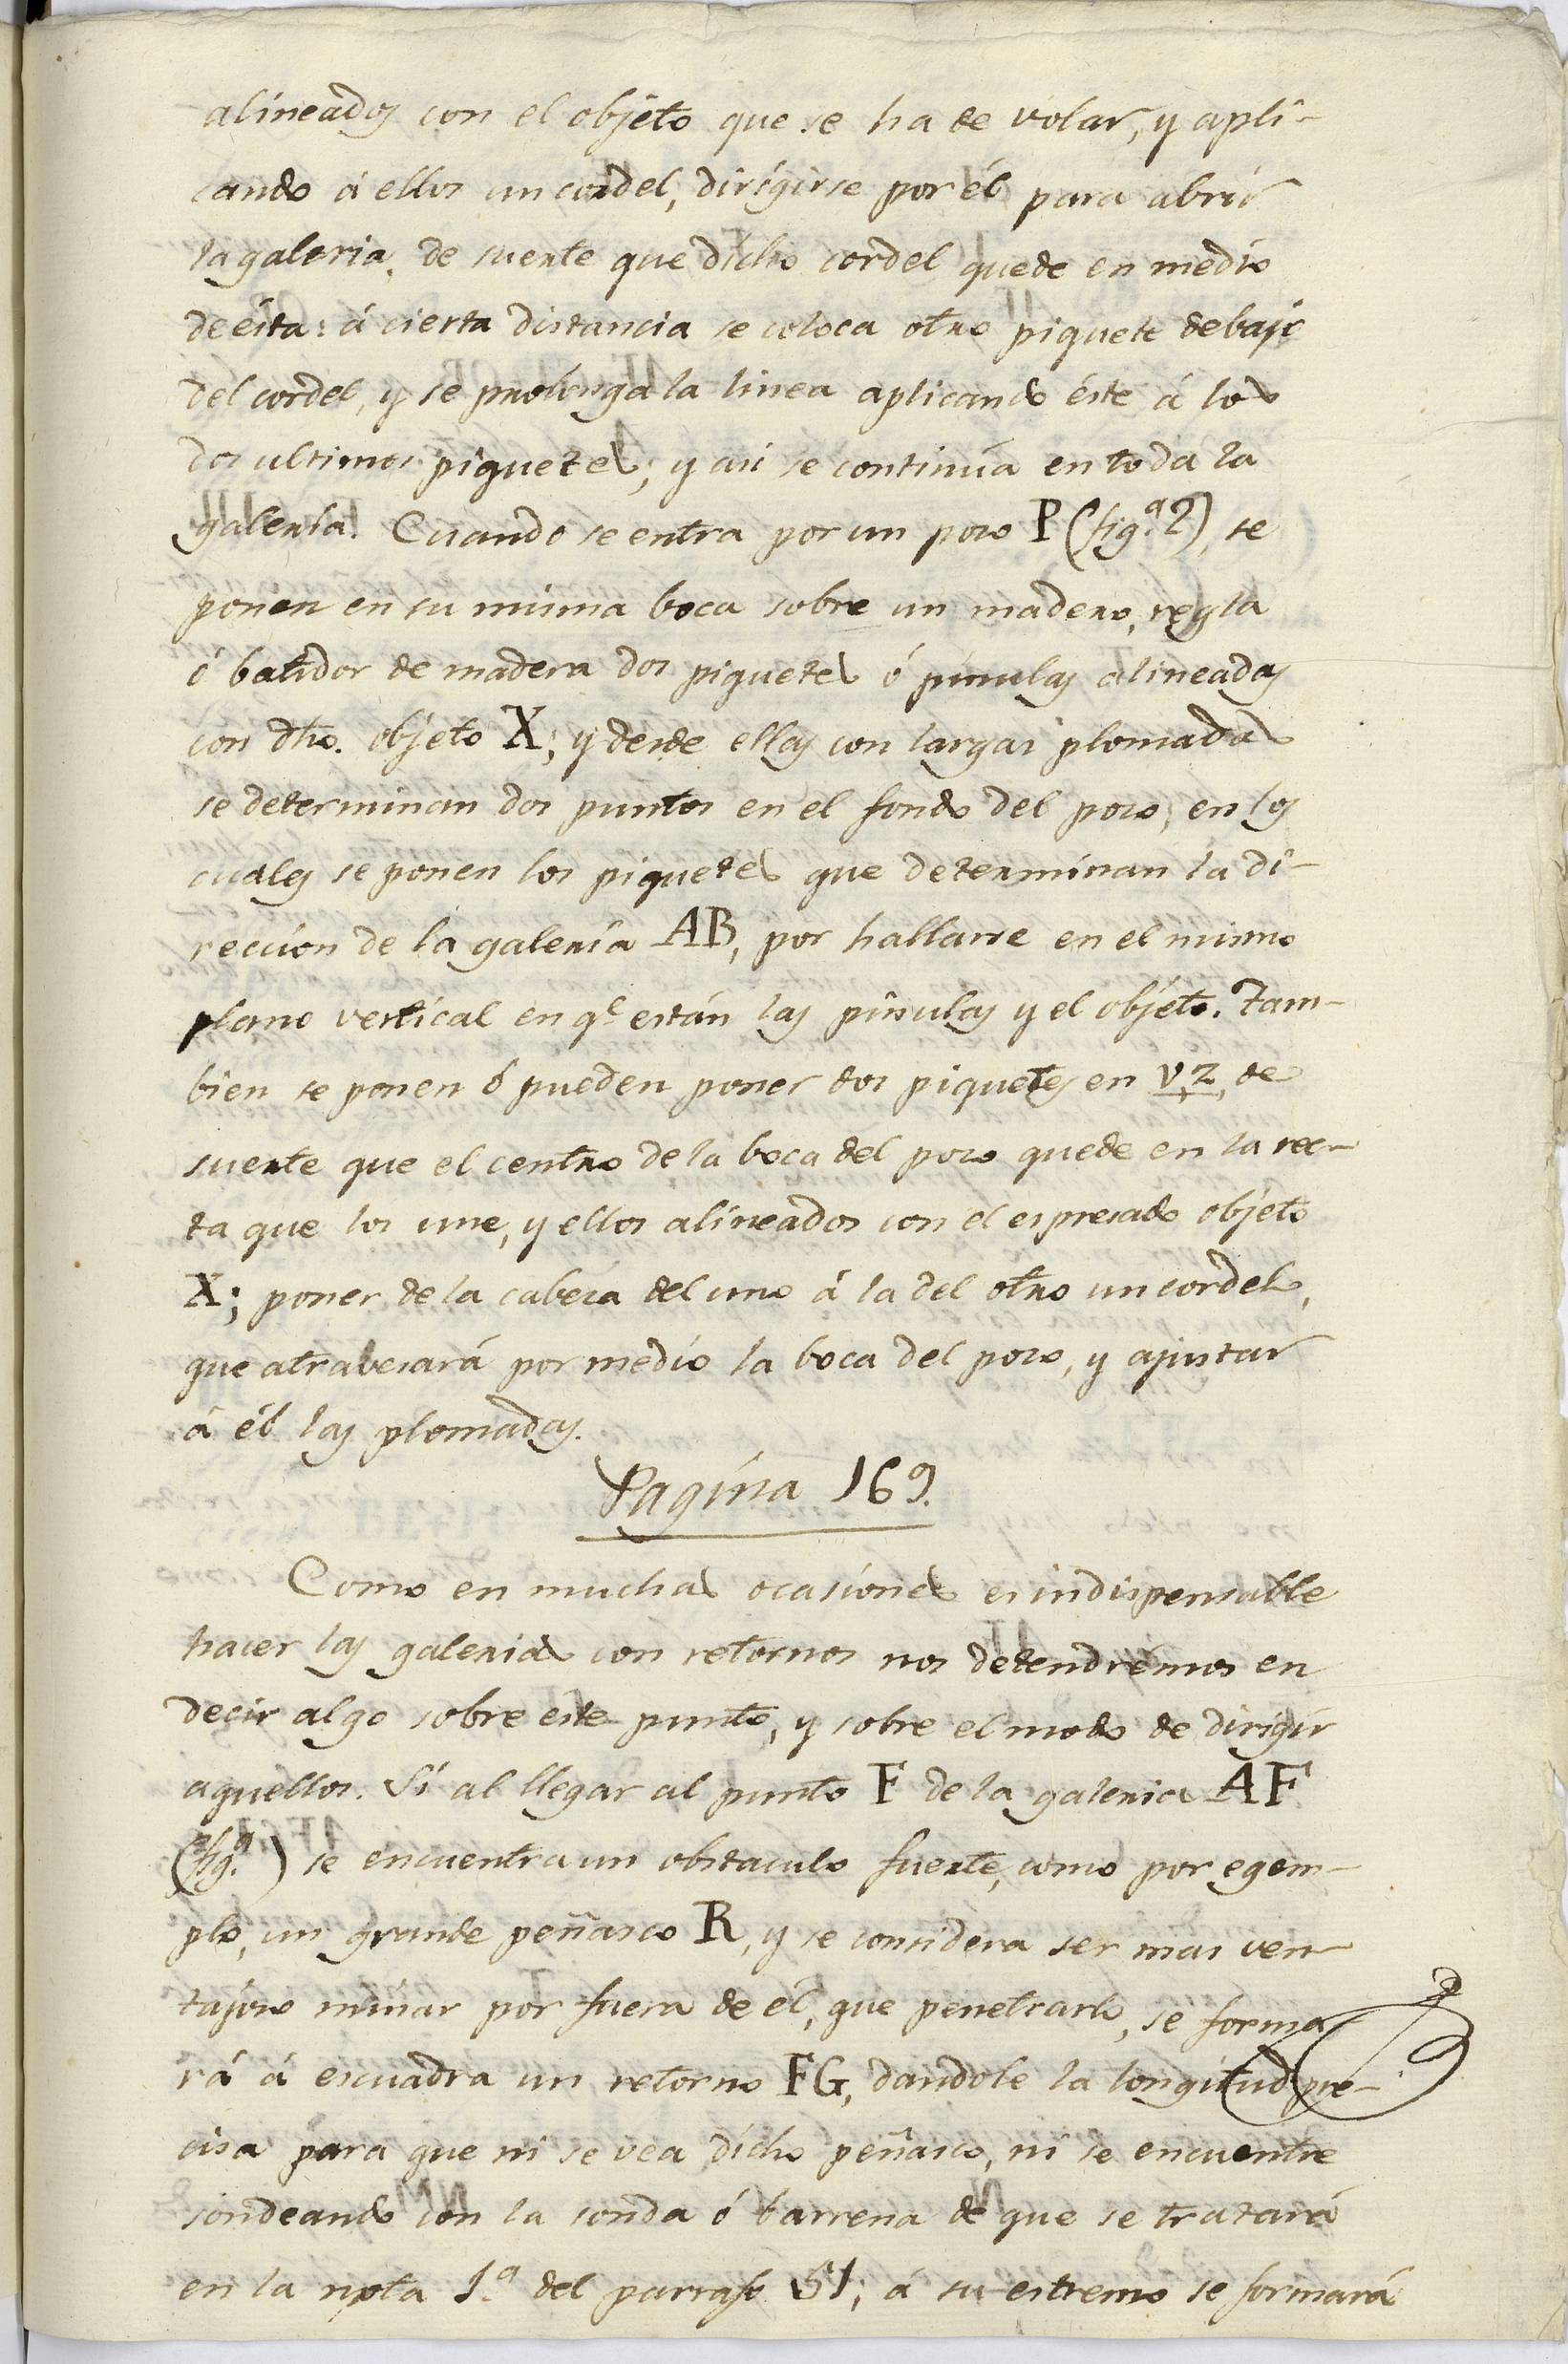 alineados con el objeto que se ha de volar, y apli-
cando á ellos un cordel, dirigirse por él para abrir
la galeria, de suerte que dicho cordel quede en medio
de ésta: á cierta distancia se coloca otro piquete debajo
del cordel, y se prolonga la linea aplicando éste á los
dos ultimos piquetes; y asi se continúa en toda la
galería. Cuando se entra por un pozo P (fig.ª 2), se
ponen en su misma boca sobre un madero, regla
ó batidor de madera dos piquetes ó pínulas alineadas
con dho. objeto X; y desde ellas con largas plomadas
se determinan dos puntos en el fondo del pozo, en los
cuales se ponen los piquetes que determinan la di-
reccion de la galería AB, por hallarse en el mismo
plano vertical en q.e están las pínulas y el objeto. Tam-
bien se ponen ó pueden poner dos piquetes en v,z, de
suerte que el centro de la boca del pozo quede en la rec-
ta que los une, y ellos alineados con el espresado objeto
X; poner de la cabeza del uno á la del otro un cordel,
que atravesará por medio la boca del pozo, y ajustar
á él las plomadas.
Pagína 169.
Como en muchas ocasiones es indispensable
hacer las galerias con retornos nos detendrémos en
decir algo sobre éste punto, y sobre el modo de dirigir
aquellos. Si al llegar al punto F de la galeria AF
(fig.ª ) se encuentra un obstaculo fuerte, como por egem-
plo, un grande peñasco R, y se considera ser mas ven-
tajoso minar por fuera de él, que penetrarlo, se forma
rá á escuadra un retorno FG, dandole la longitud pre-
cisa para que ni se vea dicho peñasco, ni se encuentre
sondeando con la sonda ó barrena de que se tratará
en la nota 1.ª del parrafo 51; á su estremo se formará